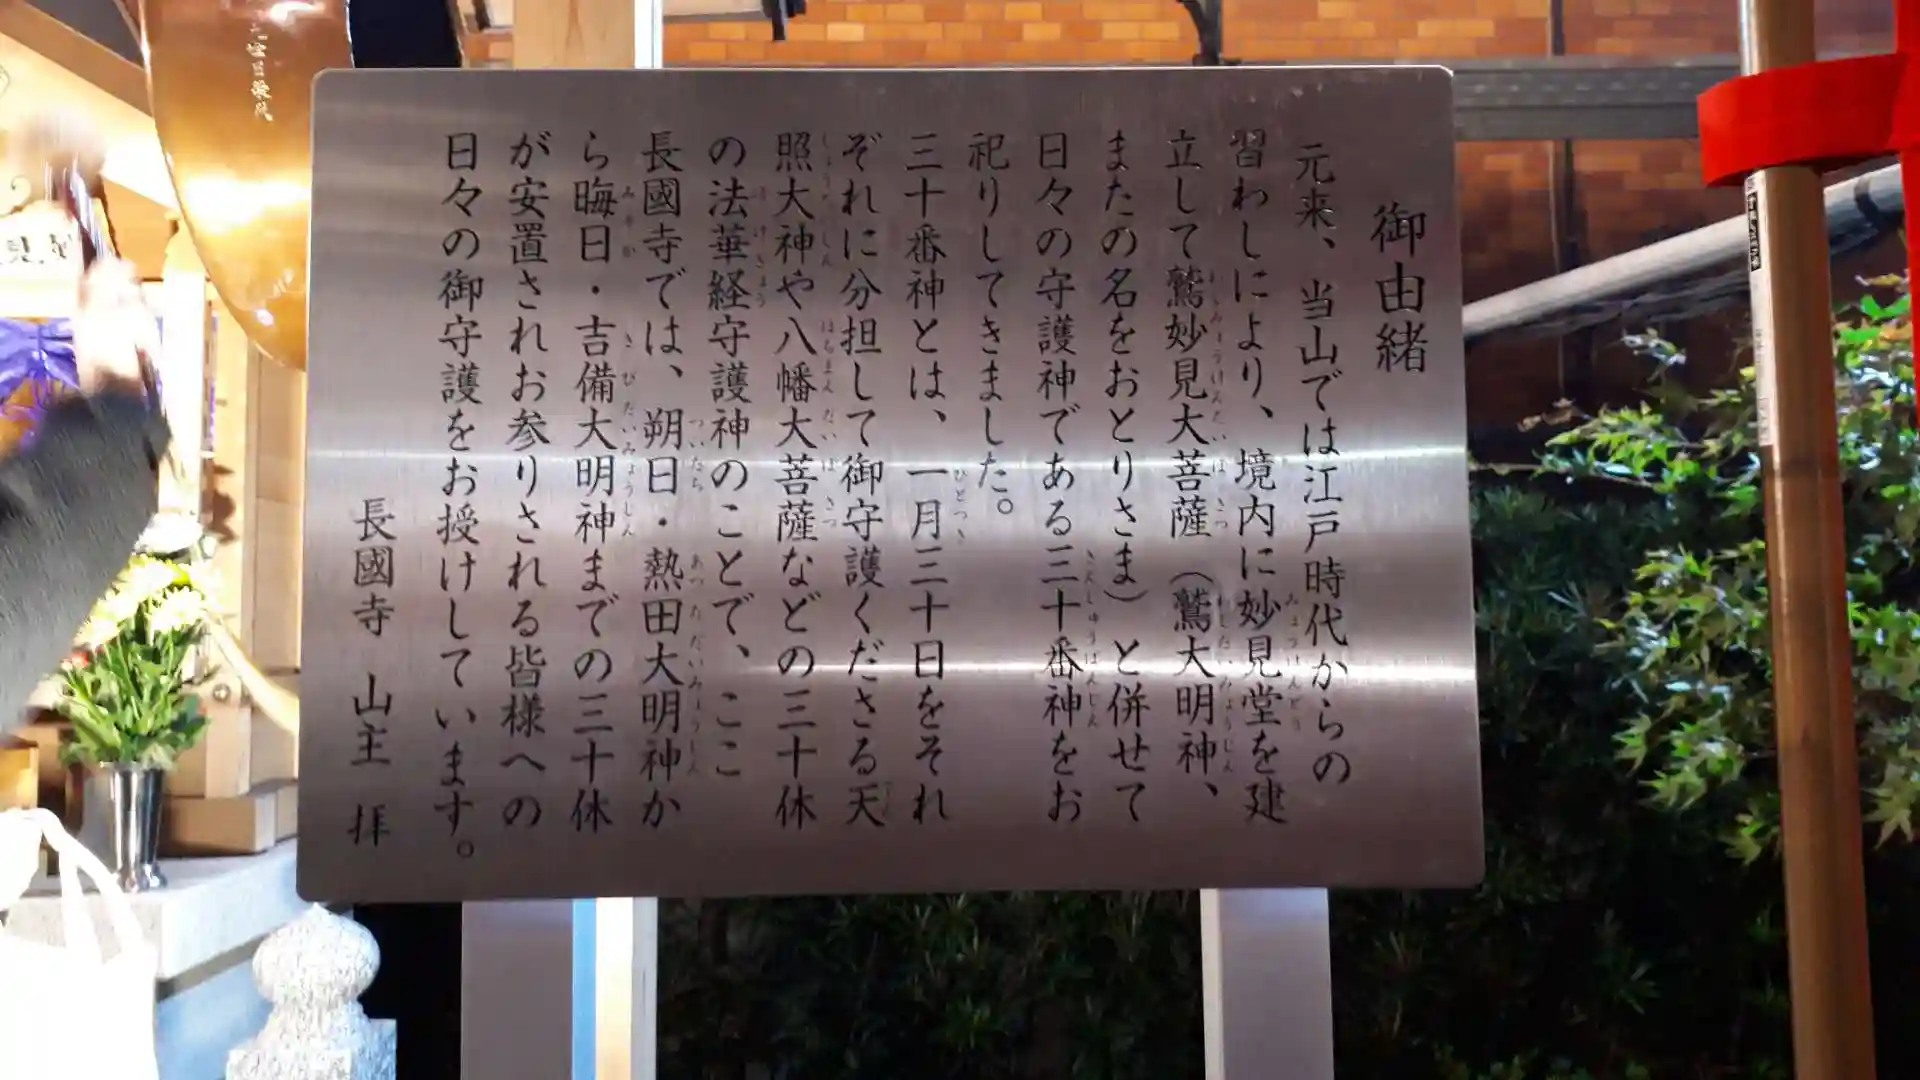 御由緒
元来、当山では江戸時代からの
習わしにより、境内に妙見堂を建
立して鷲妙見大菩薩（鷲大明神、
またの名をおとりさま）と併せて
日々の守護神である三十番神をお
祀りしてきました。
三十番神とは、一月三十日をそれ
ぞれに分担して御守護くださる天
照大神や八幡大菩薩などの三十体
の法華経守護神のことで、ここ
長國寺では、朔日・熱田大明神か
ら晦日・吉備大明神までの三十体
が安置されお参りされる皆様への
日々の御守護をお授けしています。
長國寺 山主 拝